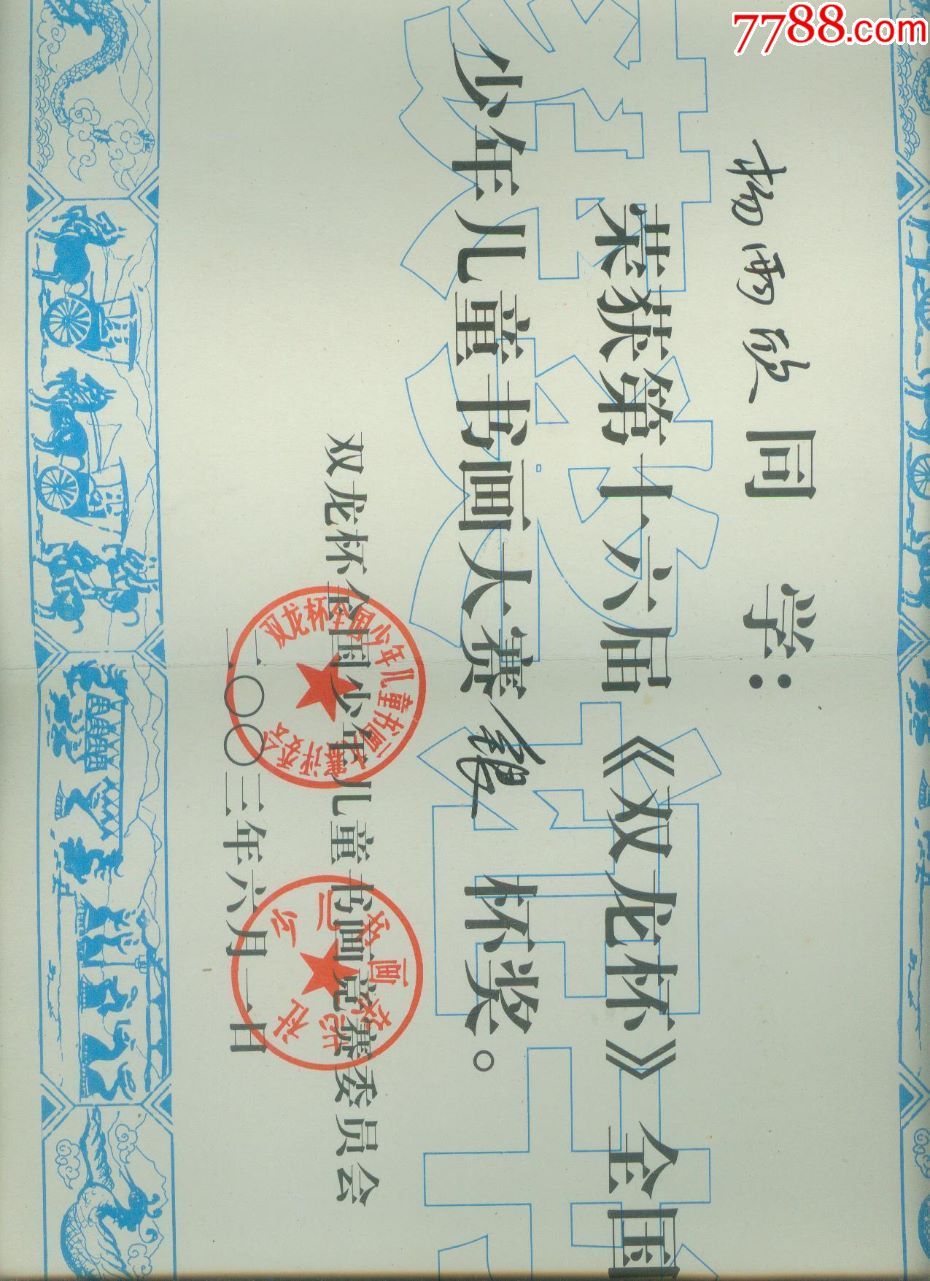 7788.com
杨雨欣同学:
荣获第十六届《双龙杯》全国
少年儿童书画大赛银杯奖。
双龙杯全国少年儿童书画竞赛委员会
二〇〇三年六月一日
双龙杯全国少年儿童书画大赛评委会
少儿书画杂志社